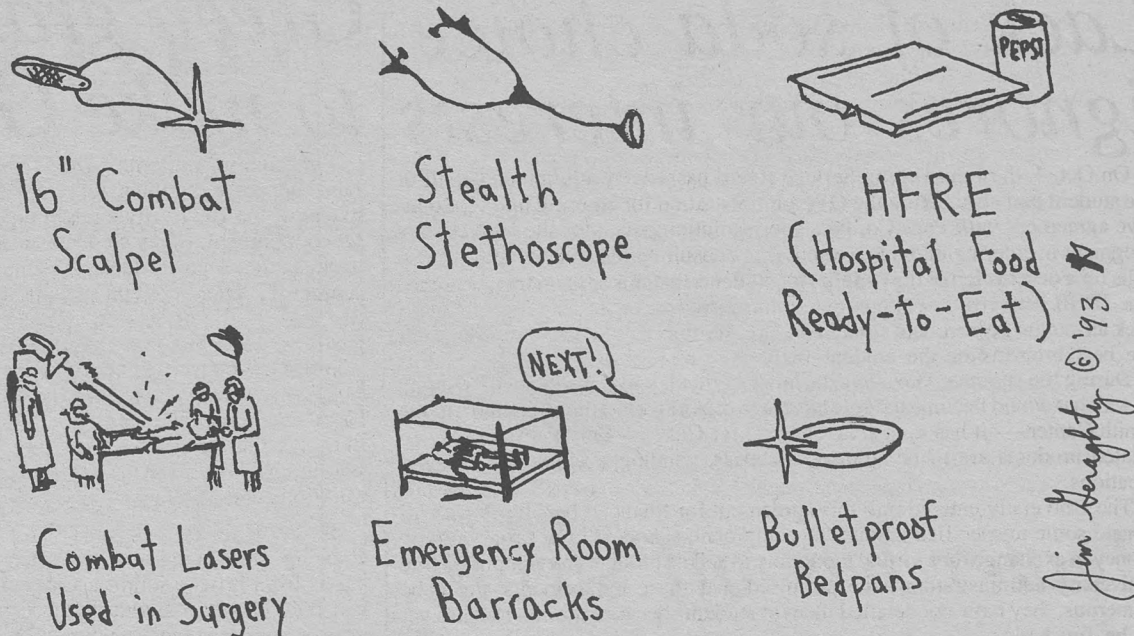 PEPSI
16" Combat
Scalpel
Stealth
Stethoscope
HFRE
(Hospital Food
Ready-to-Eat)
NEXT!
Combat Lasers
Used in Surgery
Emergency Room
Barracks
Bulletproof
Bedpans
Jim Geraghty © '93